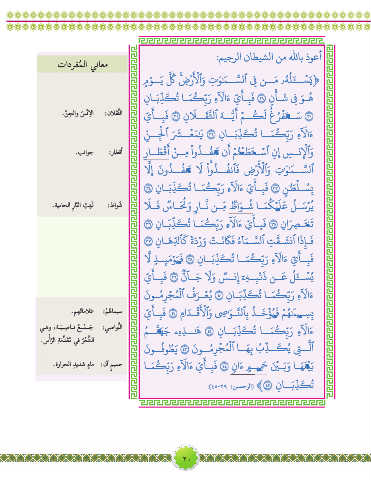 أعوذ بالله من الشيطان الرجيم:
﴿يَسْـَٔلُهُۥ مَن فِى ٱلسَّمَـٰوَٰتِ وَٱلْأَرْضِ كُلَّ يَوْمٍ
هُوَ فِى شَأْنٍ ٢٩ فَبِأَىِّ ءَالَآءِ رَبِّكُمَا تُكَذِّبَانِ
٣٠ سَنَفْرُغُ لَكُمْ أَيُّهَ ٱلثَّقَلَانِ ٣١ فَبِأَىِّ
ءَالَآءِ رَبِّكُمَا تُكَذِّبَانِ ٣٢ يَـٰمَعْشَرَ ٱلْجِنِّ
وَٱلْإِنسِ إِنِ ٱسْتَطَعْتُمْ أَن تَنفُذُوا۟ مِنْ أَقْطَارِ
ٱلسَّمَـٰوَٰتِ وَٱلْأَرْضِ فَٱنفُذُوا۟ لَا تَنفُذُونَ إِلَّا
بِسُلْطَـٰنٍ ٣٣ فَبِأَىِّ ءَالَآءِ رَبِّكُمَا تُكَذِّبَانِ ٣٤
يُرْسَلُ عَلَيْكُمَا شُوَاظٌ مِّن نَّارٍ وَنُحَاسٌ فَلَا
تَنتَصِرَانِ ٣٥ فَبِأَىِّ ءَالَآءِ رَبِّكُمَا تُكَذِّبَانِ ٣٦
فَإِذَا ٱنشَقَّتِ ٱلسَّمَآءُ فَكَانَتْ وَرْدَةً كَٱلدِّهَانِ ٣٧
فَبِأَىِّ ءَالَآءِ رَبِّكُمَا تُكَذِّبَانِ ٣٨ فَيَوْمَئِذٍ لَّا
يُسْـَٔلُ عَن ذَنۢبِهِۦٓ إِنسٌ وَلَا جَآنٌّ ٣٩ فَبِأَىِّ
ءَالَآءِ رَبِّكُمَا تُكَذِّبَانِ ٤٠ يُعْرَفُ ٱلْمُجْرِمُونَ
بِسِيمَـٰهُمْ فَيُؤْخَذُ بِٱلنَّوَٰصِى وَٱلْأَقْدَامِ ٤١ فَبِأَىِّ
ءَالَآءِ رَبِّكُمَا تُكَذِّبَانِ ٤٢ هَـٰذِهِۦ جَهَنَّمُ
ٱلَّتِى يُكَذِّبُ بِهَا ٱلْمُجْرِمُونَ ٤٣ يَطُوفُونَ
بَيْنَهَا وَبَيْنَ حَمِيمٍ ءَانٍ ٤٤ فَبِأَىِّ ءَالَآءِ رَبِّكُمَا
تُكَذِّبَانِ ٤٥﴾ (الرحمن: ٢٩-٤٥)
معاني المُفردات
الثَّقَلان: الإنْسُ والجِنُّ.
أقطار: جوانب.
شُواظٌ: لَهَبُ النَّارِ الحامية.
سيماهُمْ: علاماتُهم.
النَّواصي: جَمْعُ ناصِيَة، وهي
الشَّعْرُ في مُقَدِّمَة الرَّأْس.
حميمٍ آن: ماءٍ شديدِ الحرارة.
٢٠